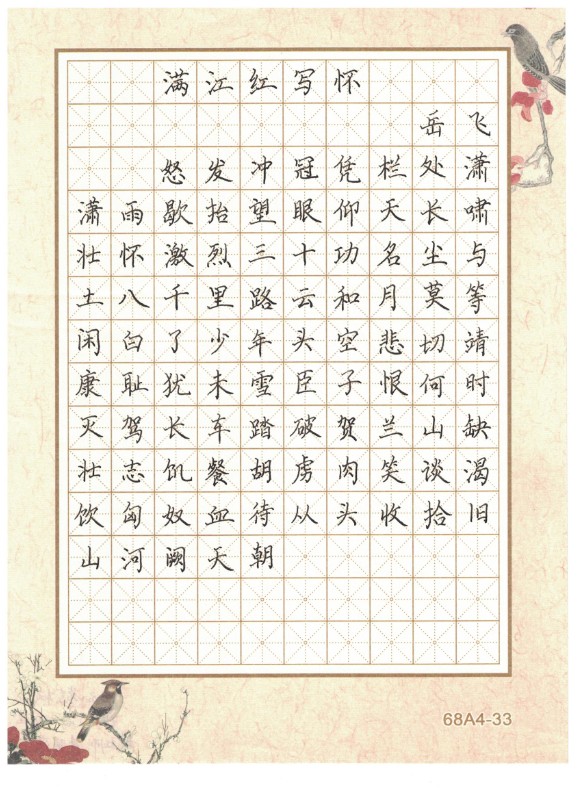 满江红写怀
岳飞
怒发冲冠凭栏处潇
潇雨歇抬望眼仰天长啸
壮怀激烈三十功名尘与
土八千里路云和月莫等
闲白了少年头空悲切靖
康耻犹未雪臣子恨何时
灭驾长车踏破贺兰山缺
壮志饥餐胡虏肉笑谈渴
饮匈奴血待从头收拾旧
山河阙天朝
68A4-33